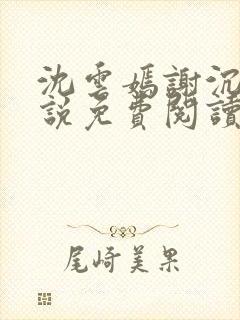 沈雲嫣謝沉
說免費閱讀
尾崎美果